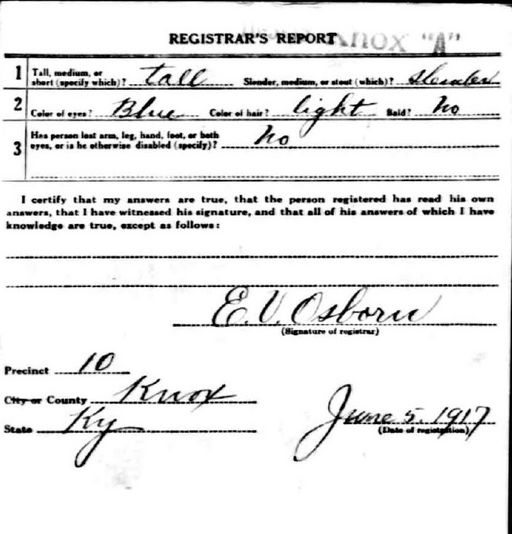 REGISTRAR'S REPORT Knox "A"
1 Tall, medium, or short (specify which)? tall Slender, medium, or stout (which)? slender
2 Color of eyes? Blue Color of hair? light Bald? No
3 Has person lost arm, leg, hand, foot, or both
eyes, or is he otherwise disabled (specify)? No
I certify that my answers are true, that the person registered has read his own
answers, that I have witnessed his signature, and that all of his answers of which I have
knowledge are true, except as follows:
E. V. Osborn
(Signature of registrar)
Precinct 10
City or County Knox
State Ky June 5. 1917
(Date of registration)